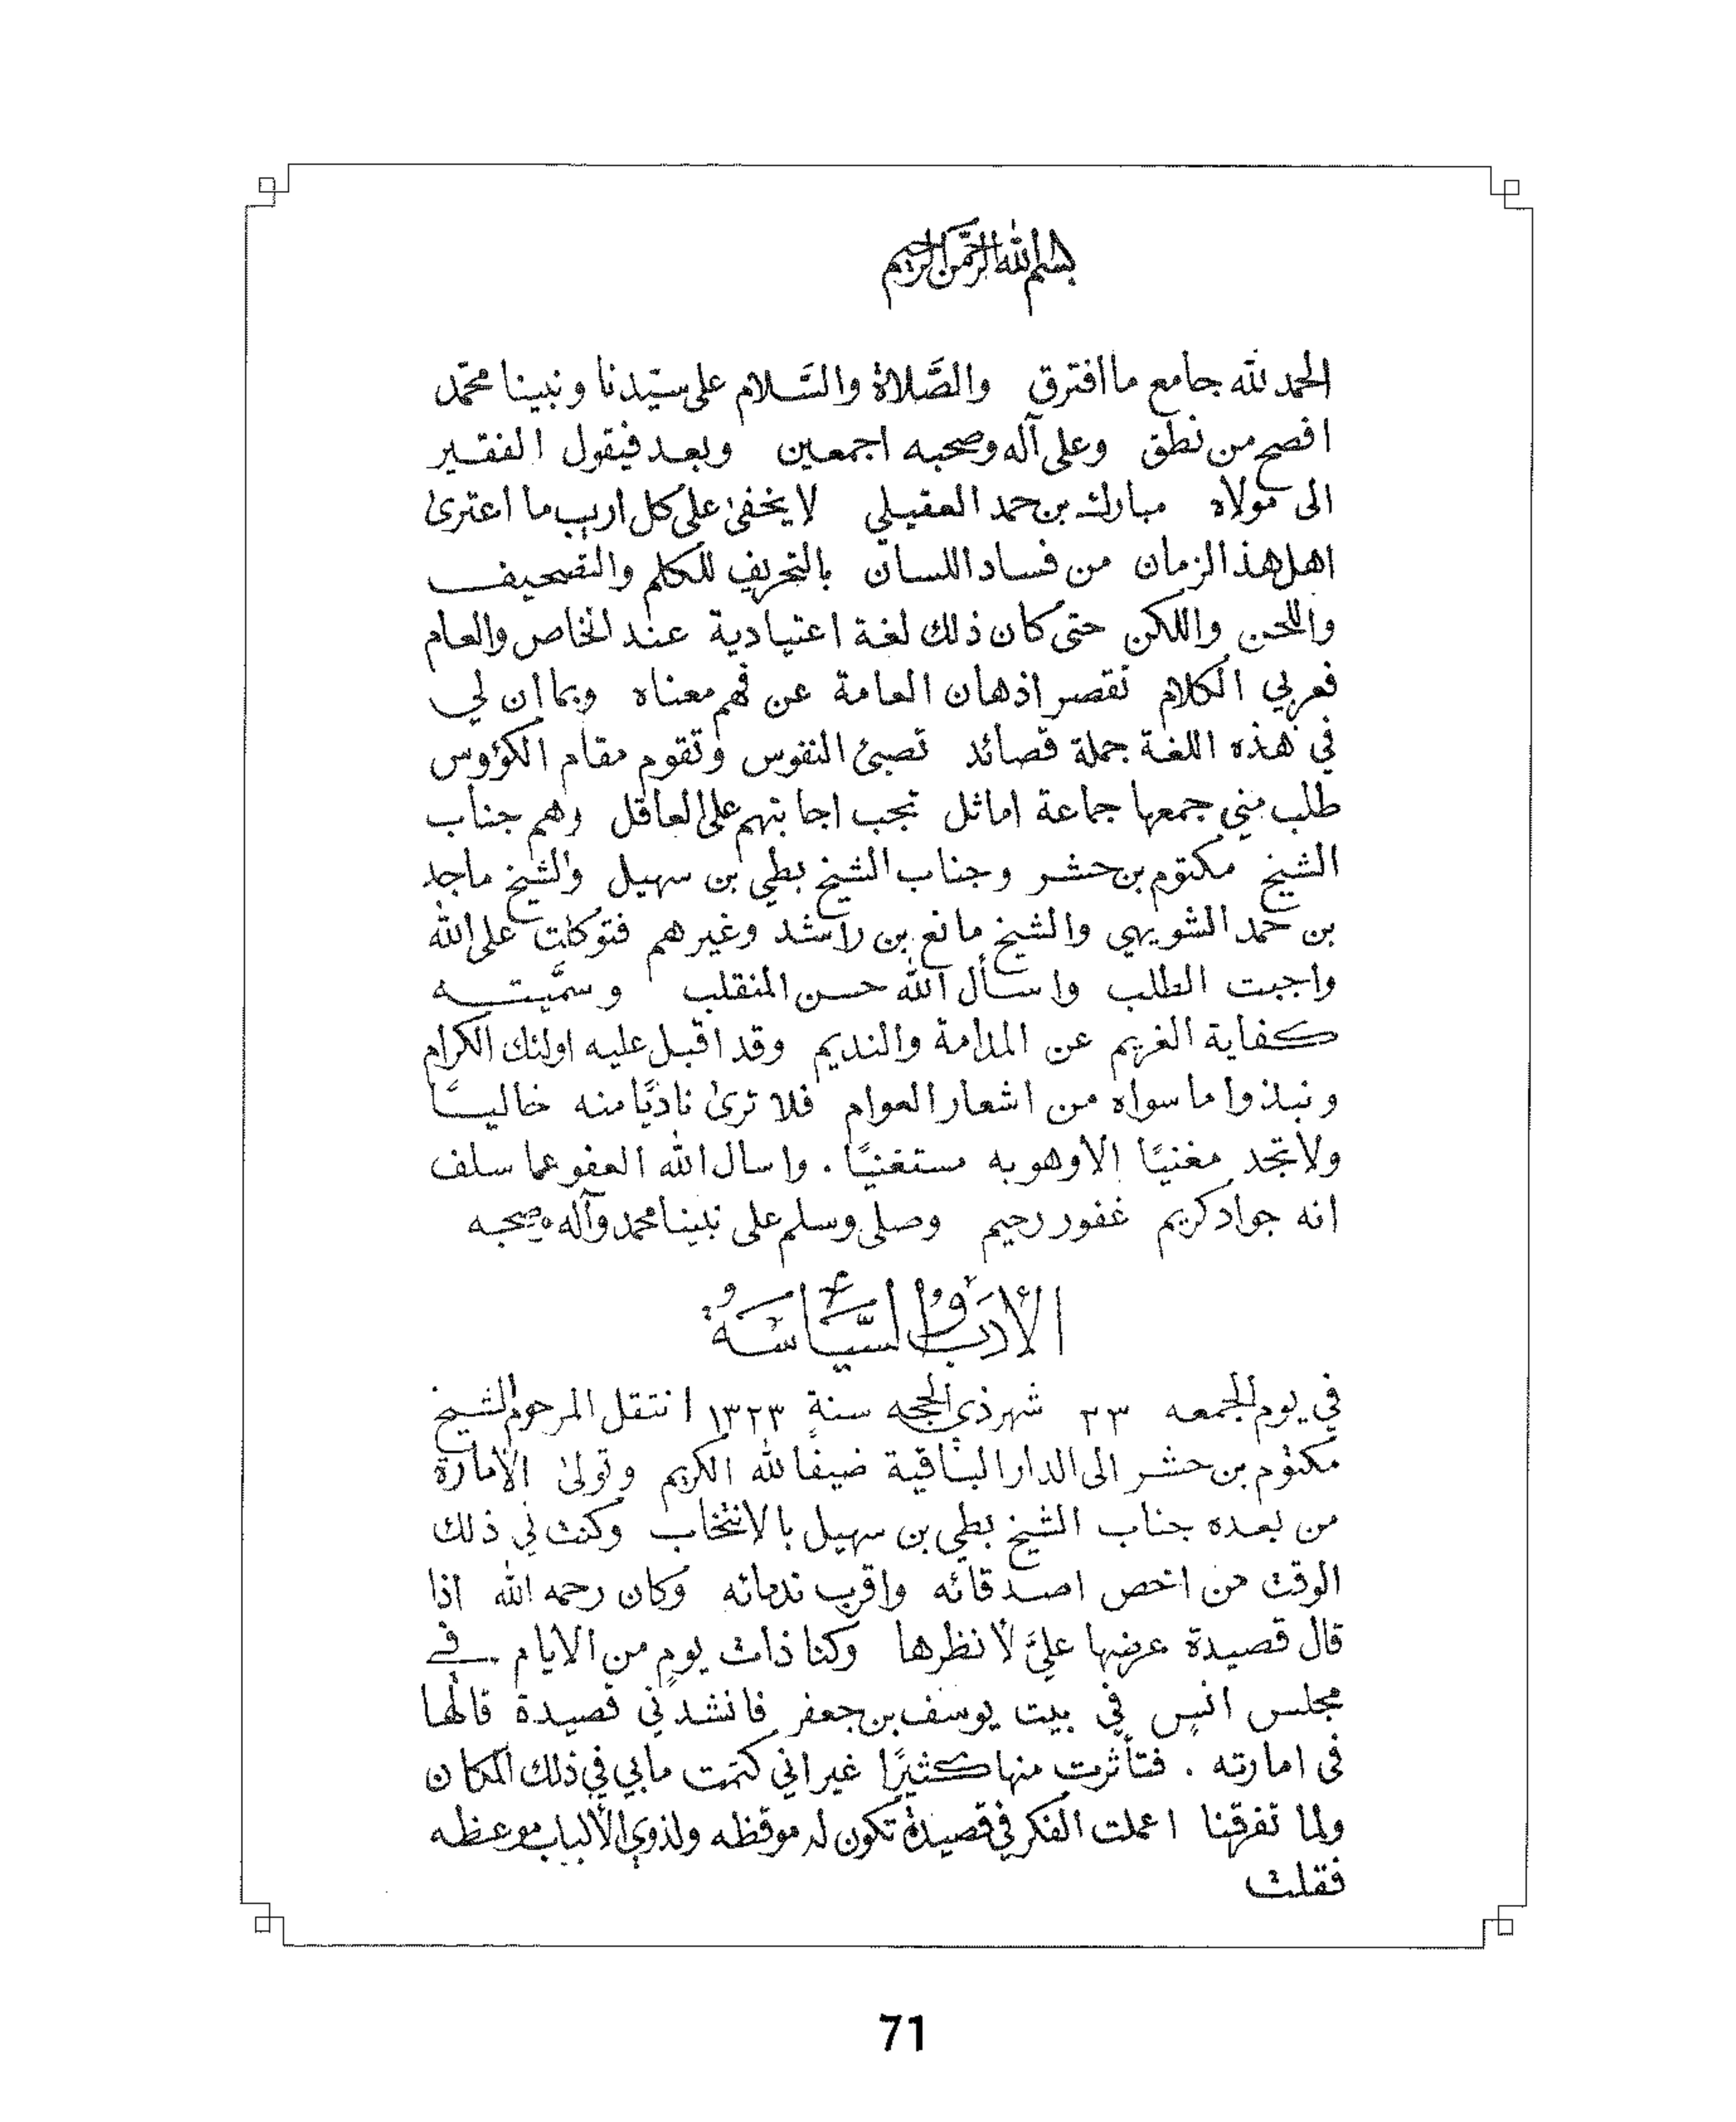 بسم الله الرحمن الرحيم
الحمد لله جامع ما افترق والصَّلاة والسَّلام على سيّدنا ونبينا محمّد
افصح من نطق وعلى آله وصحبه اجمعين وبعد فيقول الفقير
الى مولاه مبارك بن حمد العقيلي لا يخفىٰ على كل اريب ما اعترىٰ
اهل هذ الزمان من فساد اللسان بالتحريف للكلم والتصحيف
واللحن واللكن حتى كان ذلك لغة اعتيادية عند الخاص والعام
فعربي الكلام تقصر اذهان العامة عن فهم معناه وبما ان لي
في هذه اللغة جملة قصائد تصبئ النفوس وتقوم مقام الكؤوس
طلب مني جمعها جماعة اماثل تجب اجابتهم على العاقل وهم جناب
الشيخ مكتوم بن حشر وجناب الشيخ بطي بن سهيل والشيخ ماجد
بن حمد الشويهي والشيخ مانع بن راشد وغيرهم فتوكلت على الله
واجبت الطلب واسأل الله حسن المنقلب وسمَّيته
كفاية الغريم عن المدامة والنديم وقد اقبل عليه اولئك الكرام
ونبذوا ما سواه من اشعار العوام فلا ترىٰ ناديًا منه خاليًا
ولا تجد مغنيًا الا وهو به مستغنيًا . واسال الله العفو عما سلف
انه جواد كريم غفور رحيم وصلى وسلم على نبينا محمد وآله وصحبه
الأدَبُ والسّيَاسَةُ
في يوم الجمعه ٢٣ شهر ذي الحجه سنةٍ ١٣٢٣ انتقل المرحوم الشيخ
مكتوم بن حشر الى الدار الباقية ضيفًا لله الكريم وتولىٰ الأمارة
من بعده جناب الشيخ بطي بن سهيل بالانتخاب وكنت في ذلك
الوقت من اخص اصدقائه واقرب ندمائه وكان رحمه الله اذا
قال قصيدة عرضها عليَّ لأنظرها وكنا ذات يومٍ من الايام في
مجلس انسٍ في بيت يوسف بن جعفر فانشدني قصيدة قالها
فى امارته . فتأثرت منها كثيرًا غير اني كتمت مابي في ذلك المكان
ولما تفرقنا اعملت الفكر في قصيدة تكون له موقظه ولذوي الألباب موعظه
فقلت
71